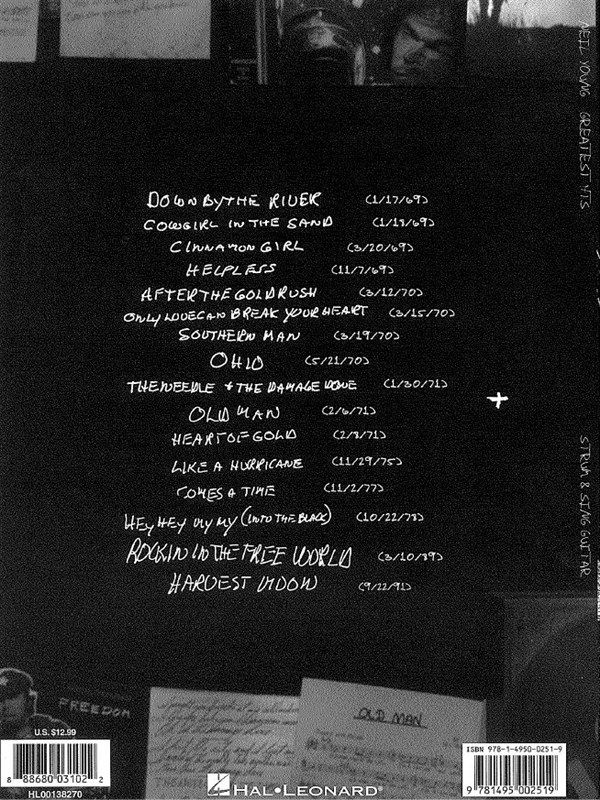 NEIL YOUNG GREATEST HITS
DOWN BY THE RIVER (1/17/69)
COWGIRL IN THE SAND (1/18/69)
CINNAMON GIRL (3/20/69)
HELPLESS (11/7/69)
AFTER THE GOLD RUSH (3/12/70)
ONLY LOVE CAN BREAK YOUR HEART (3/15/70)
SOUTHERN MAN (3/19/70)
OHIO (5/21/70)
THE NEEDLE + THE DAMAGE DONE (1/30/71)
OLD MAN (2/6/71)
HEART OF GOLD (2/8/71)
LIKE A HURRICANE (11/29/75)
COMES A TIME (11/2/77)
HEY HEY MY MY (INTO THE BLACK) (10/22/78)
ROCKIN IN THE FREE WORLD (3/10/89)
HARVEST MOON (9/22/91)
STRUM & SING GUITAR
FREEDOM
OLD MAN
U.S. $12.99
8 88680 03102 2
HL00138270
HAL•LEONARD®
ISBN 978-1-4950-0251-9
9 781495 002519